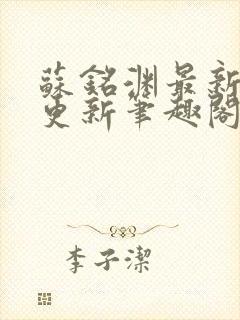 蘇銘淵最新
更新筆趣閣
李子潔